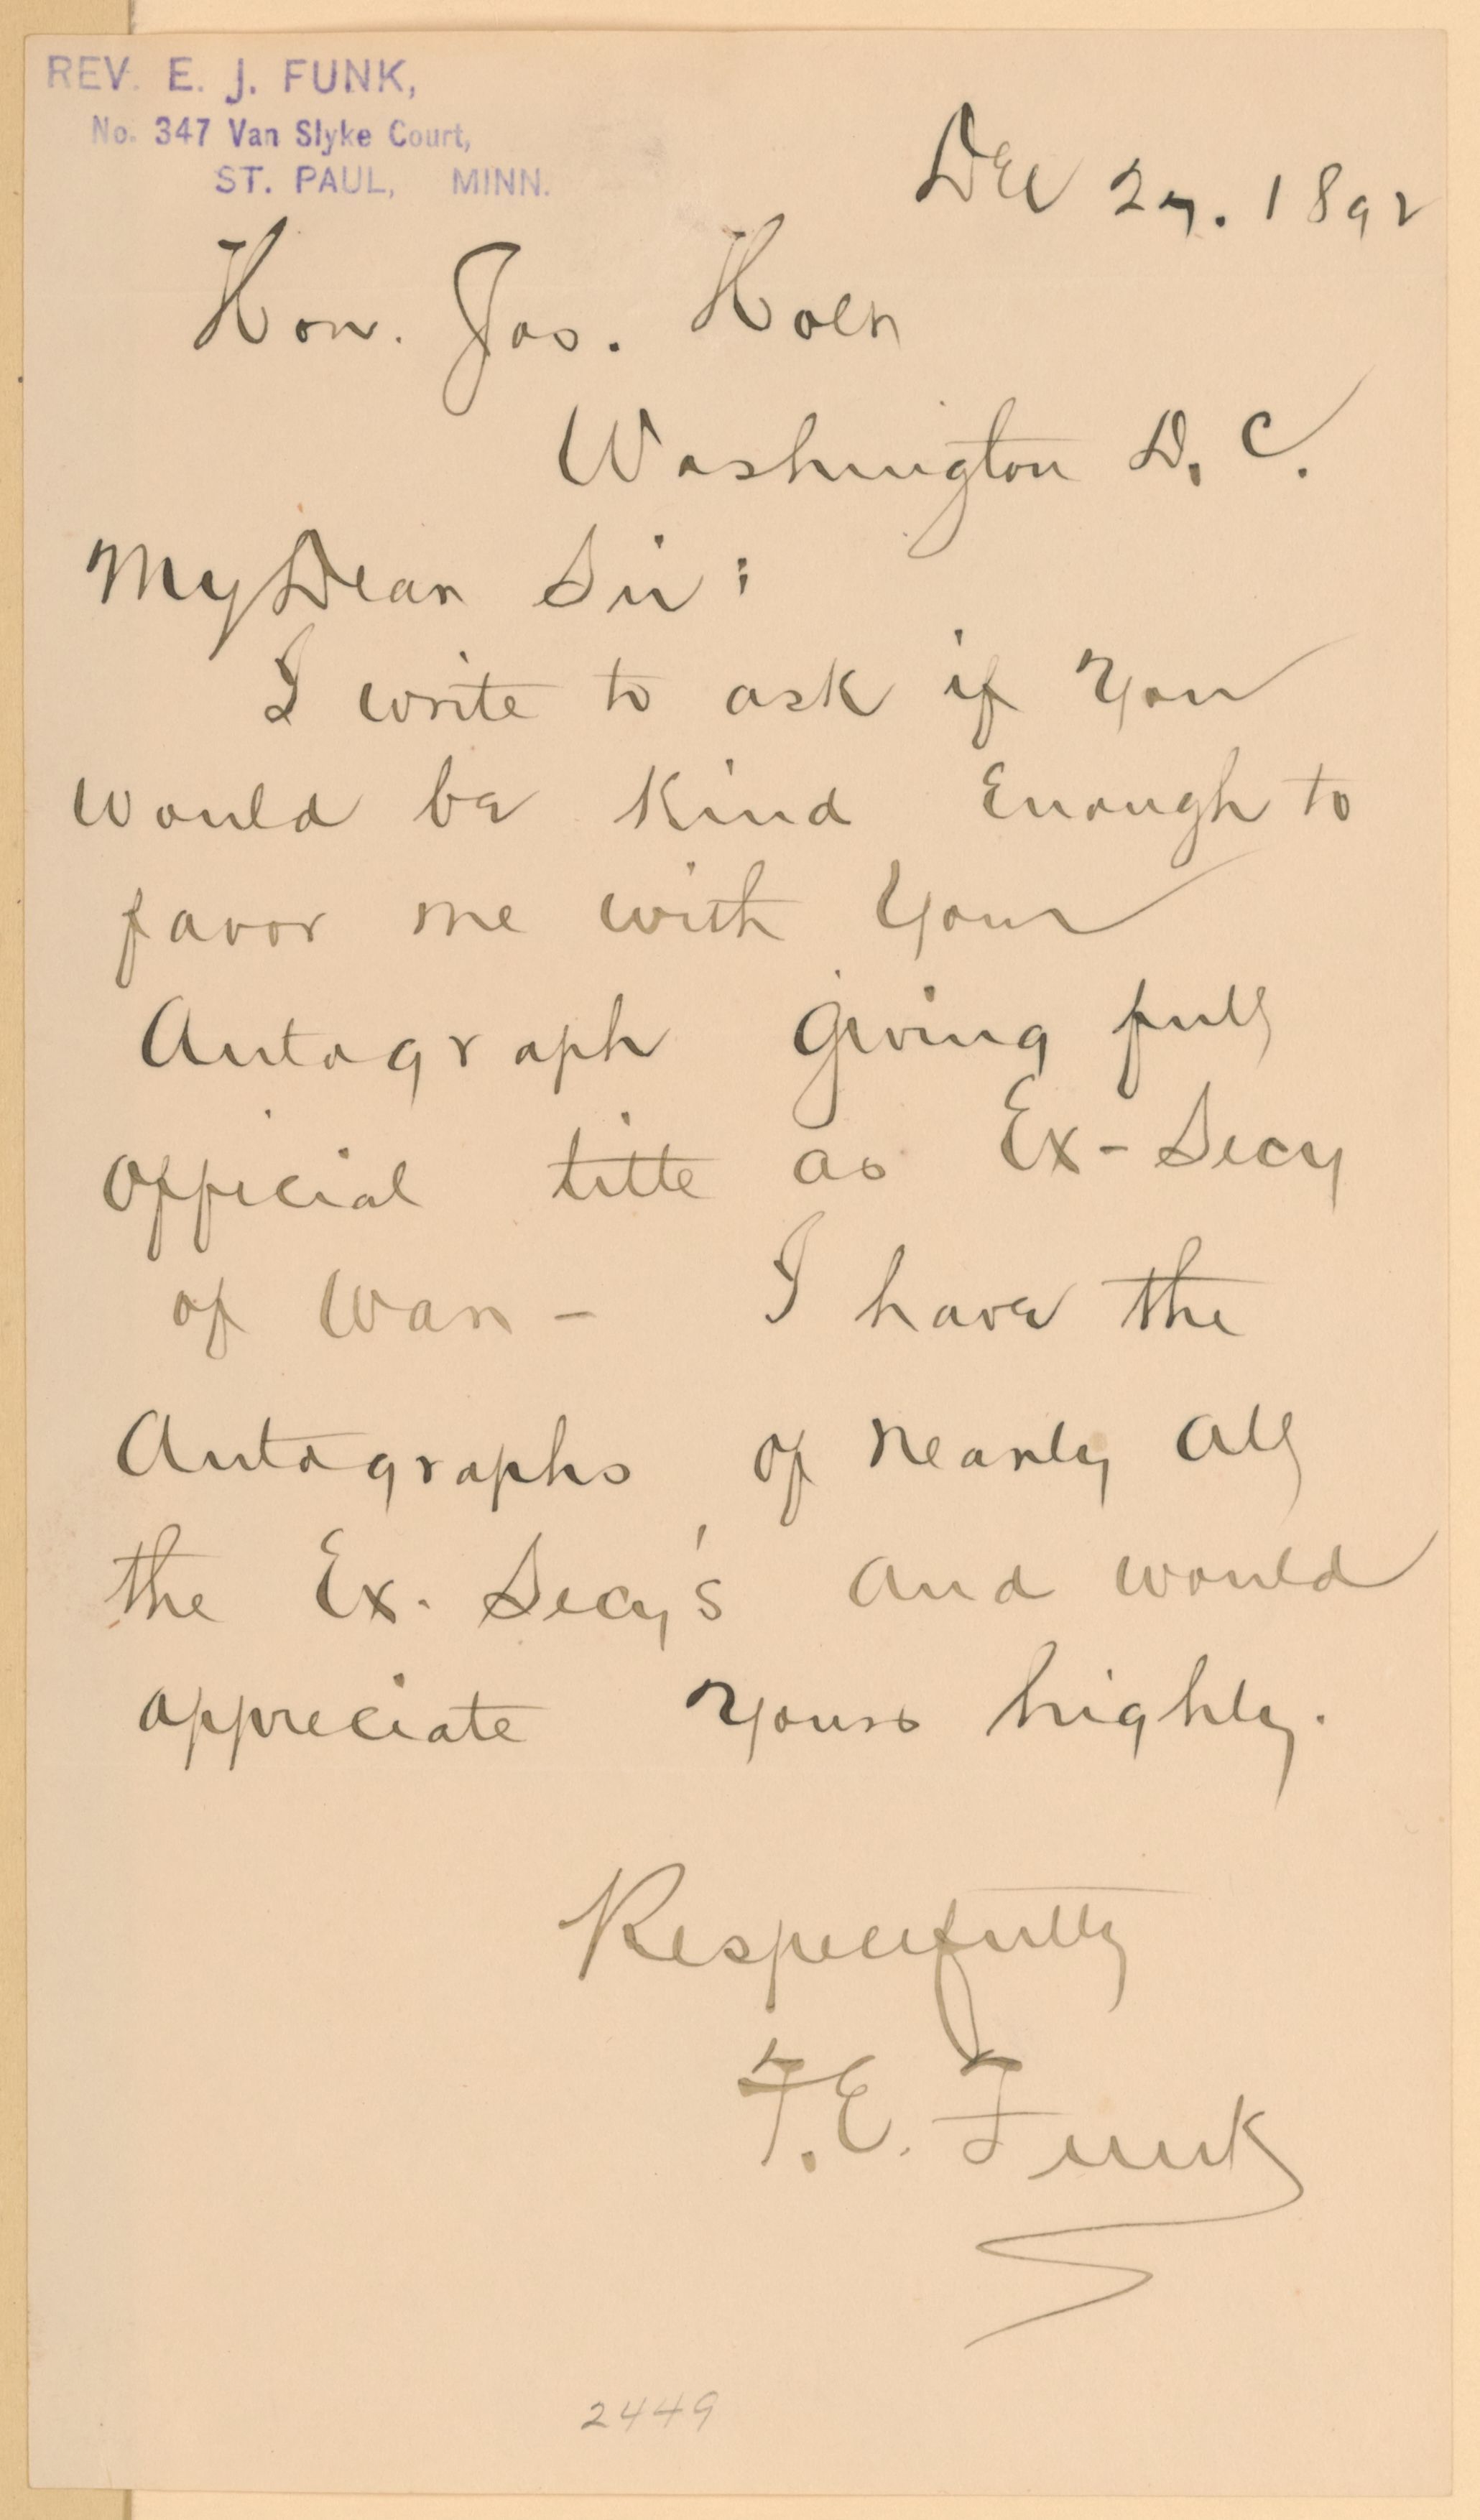 REV. E. J. FUNK,
No. 347 Van Slyke Court,
ST. PAUL, MINN.
Dec 27. 1892
Hon. Jos. Holt
Washington D. C.
My Dear Sir:
I write to ask if you
would be kind Enough to
favor me with your
Autograph giving full
official title as Ex-Secy
of War – I have the
Autographs of nearly all
the Ex. Secy's and would
appreciate yours highly.
Respectfully
F. E. Funk
2449